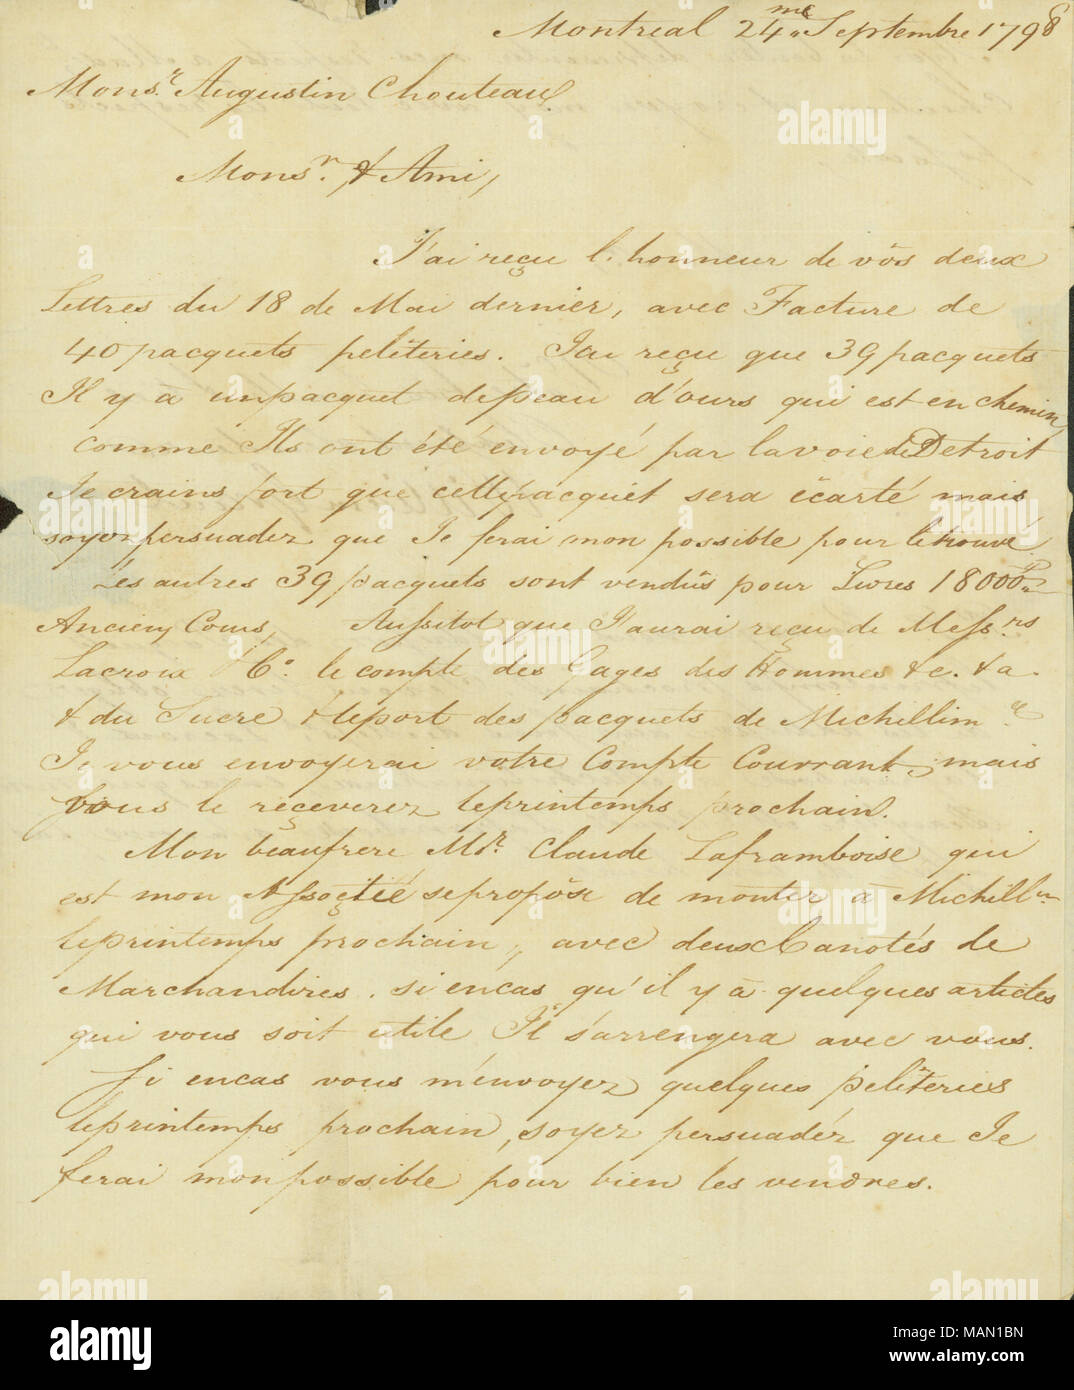 Montreal 24me Septembre 1798
Monsr. Augustin Chouteau
Monsr. & Ami,
J'ai reçu l'honneur de vôs deux
Lettres du 18 de Mai dernier, avec Facture de
40 pacquets pelîteries. J'ai reçu que 39 pacquets
Il y à un pacquet de peau d'ours qui est en chemin,
comme Ils ont été envoyé par la voie de Detroit
Je crains fort que cette pacquét sera ècarté mais
soyez persuadez que Je ferai mon possible pour le trouvé.
Les autres 39 pacquets sont vendûs pour Livres 18000
Ancien Cours, Aussitot que J'aurai reçu de Messrs
Lacroix & Co. le compte des Gages des Hommes &c. &a.
& du Sucre & le port des pacquets de Michillim
Je vous envoyerai votre Compte Courrant, mais
vous le reçeverez le printemps prochain.
Mon beaufrere Mr. Claude Laframboise qui
est mon Associé se propôse de monter à Michilln
le printemps prochain, avec deux Canotés de
Marchandises. si en cas qu'il y à quelques articles
qui vous soit utile Il s'arrengera avec vous.
Si en cas vous m'envoyez quelques pelîteries
le printemps prochain, soyez persuadér que Je
ferai mon possible pour bien les vendres.
alamy
alamy stock photo
MAN1BN
www.alamy.com